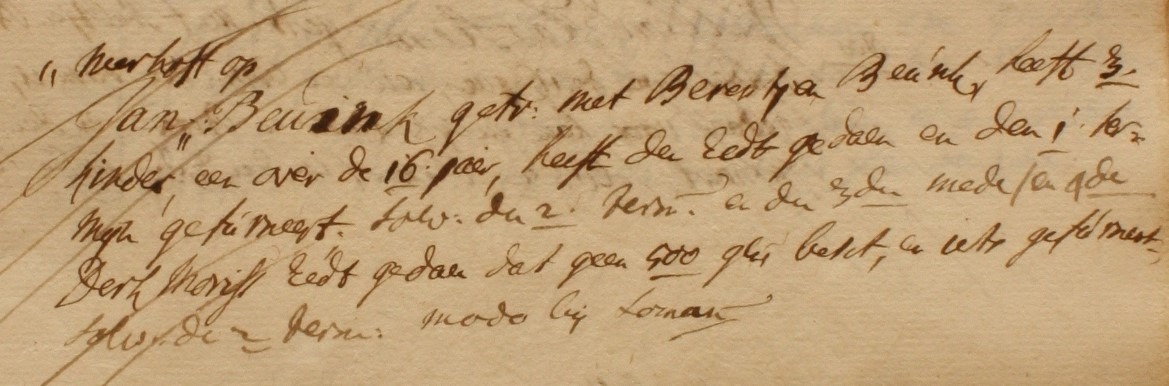 „ Meerhoff op
Jan Beunink getr: met Berentjen Beunk, heeft 3.
kinder, een over de 16. jaer, heeft den Eedt gedaen en den 1. ter=
myn gefurneert. solv: den 2. term: en den 3den mede en 4de
Derk Eedt gedaen dat geen 500 gls besit, en iets gefurneert
solv: de 2 term: modo bij